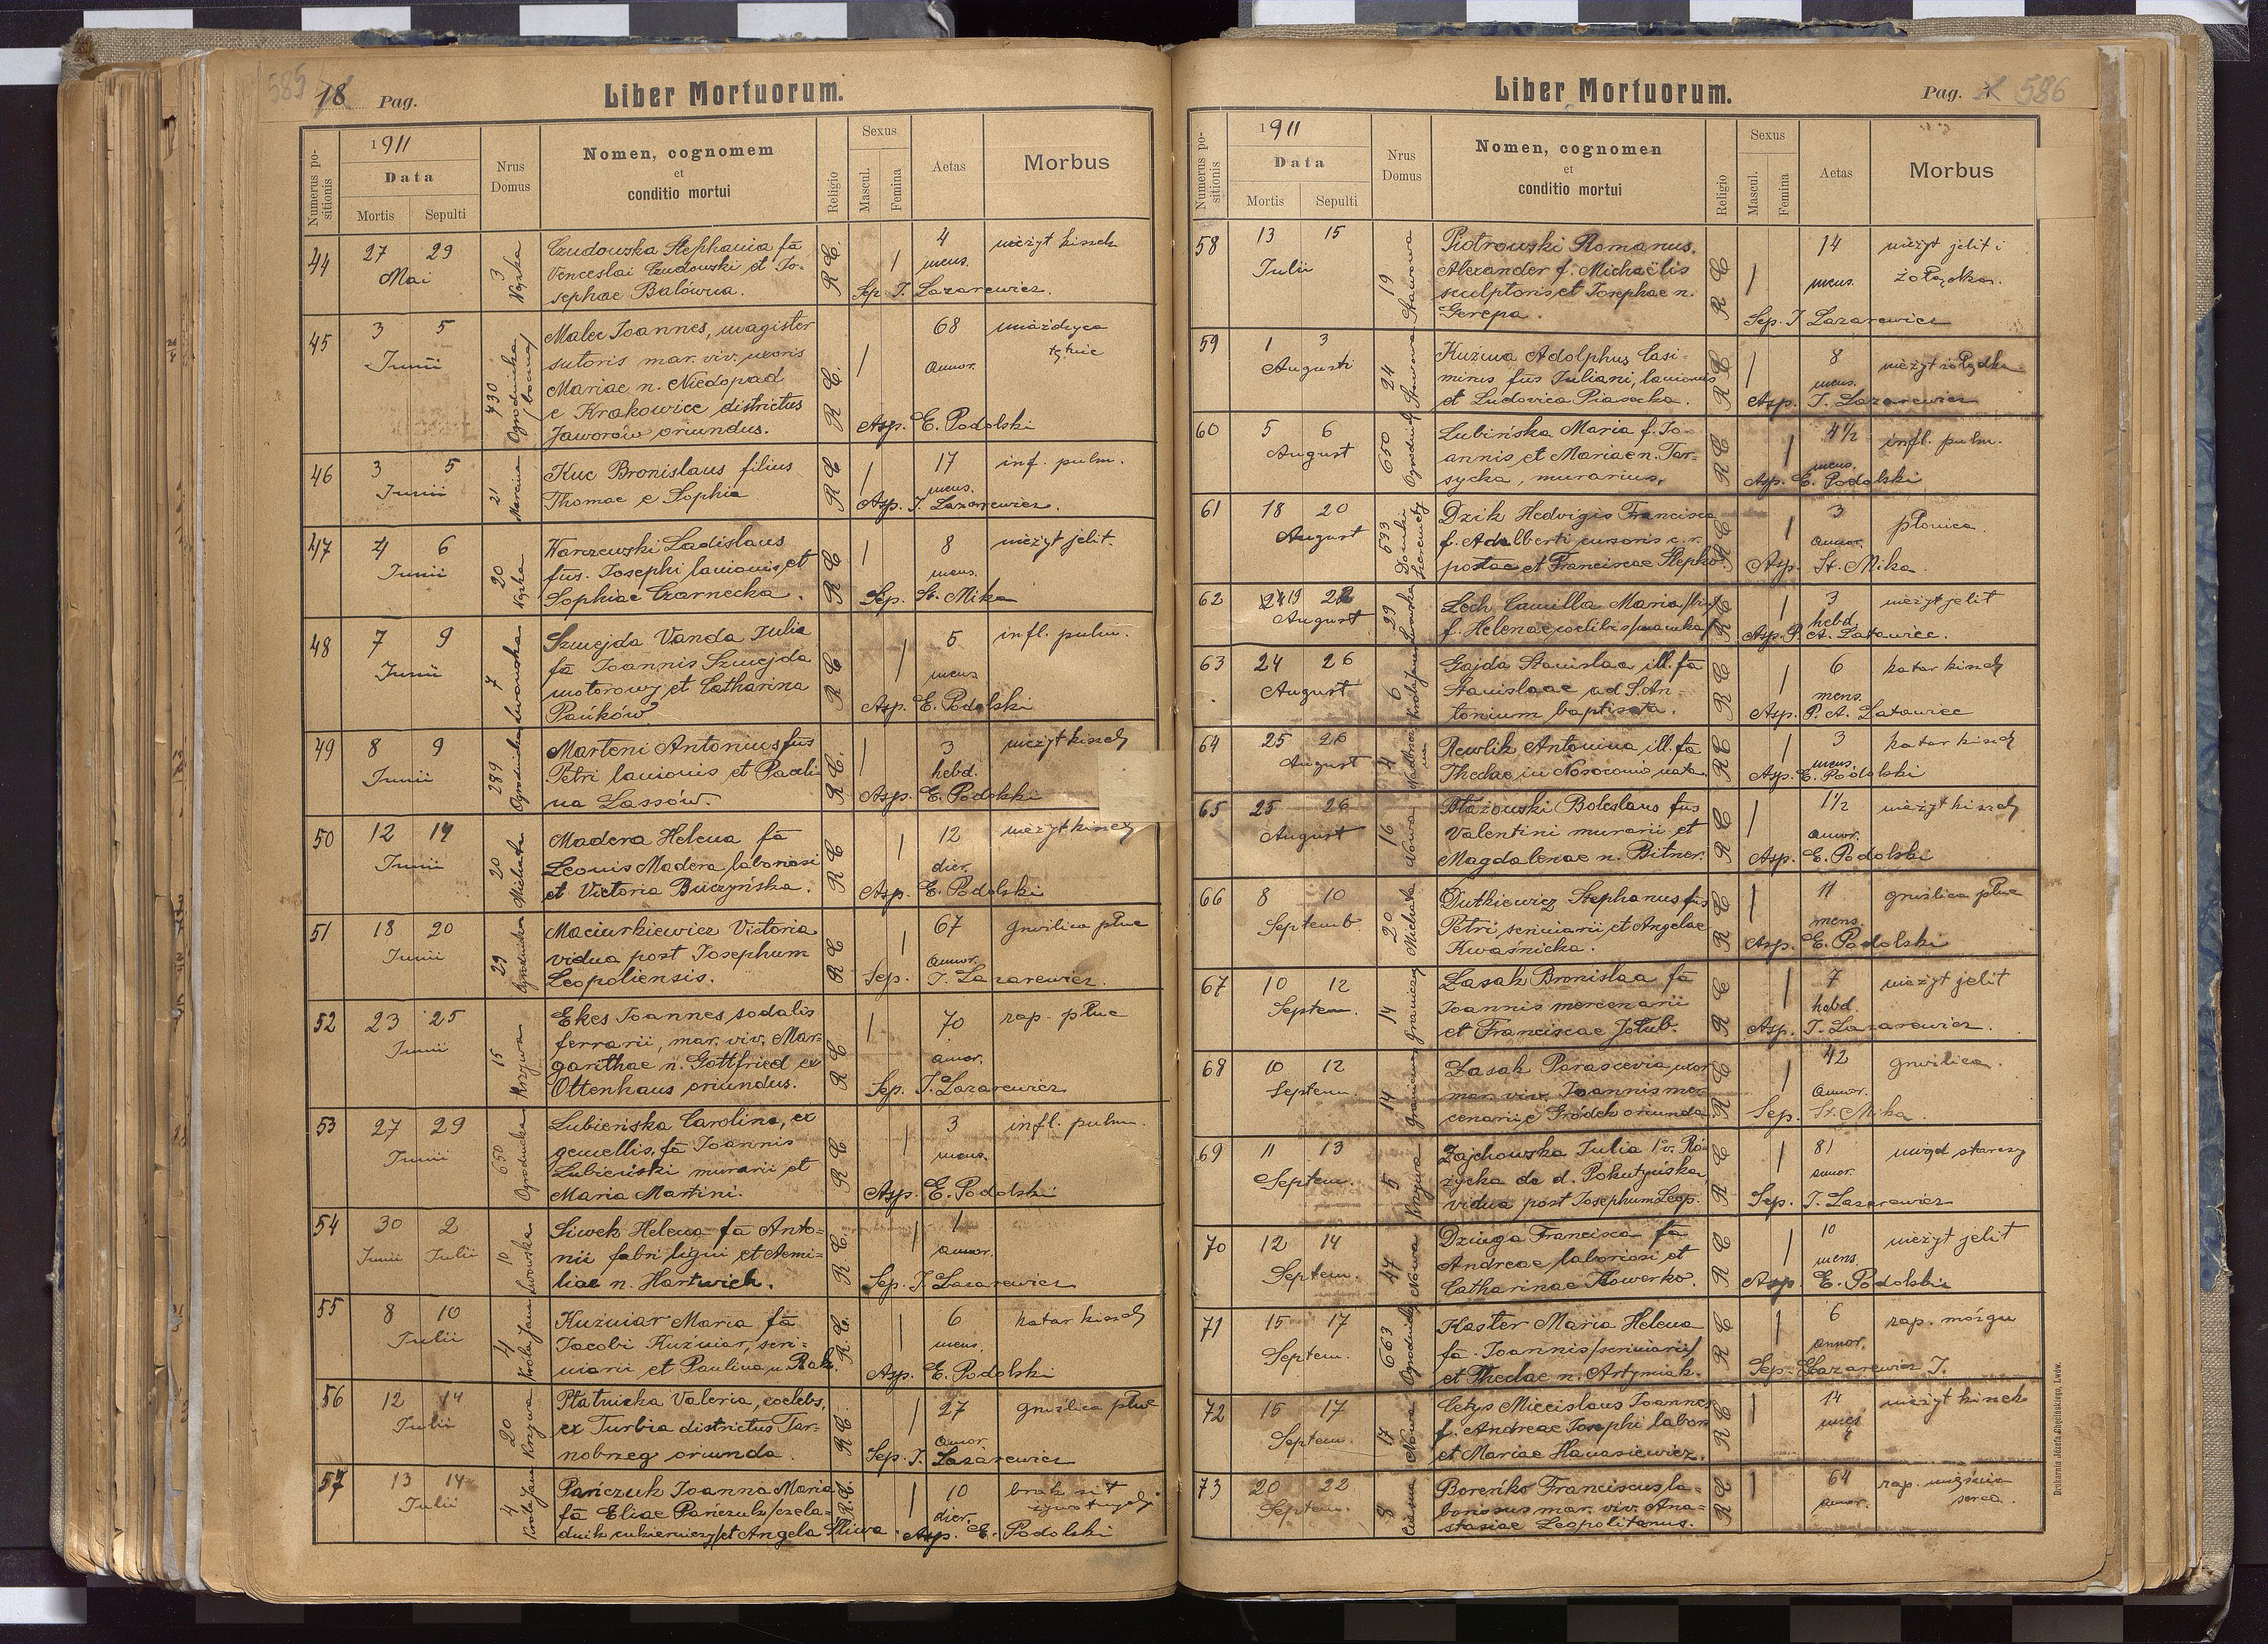 585 78 Pag. Liber Mortuorum.
Numerus positionis
1911
Data
Mortis Sepulti
Nrus Domus
Nomen, cognomem
et
conditio mortui
Religio
Sexus
Mascul. Femina
Aetas
Morbus
44 27 29 Mai 3 Czudowska Stephania fa 4 nieżyt kiszek
Venceslai Czudowski et Jo- R C. 1 mens.
sephae Balówna. Sep. J. Lazarewicz.
45 3 5 Junii 430 Ogrodnicka /boczna/ Malec Joannes, magister 68 miażdżyca
sutoris mar. viv. uxoris 1 annor. tętnic
Mariae n. Niedopad
e Krakowiec districtus R C.
Jaworów oriundus. Asp. E. Podolski
46 3 5 Junii 21 Marcina Kuc Bronislaus filius R C 1 17 inf. pulm.
Thomae e Sophia mens. Asp. J. Lazarewicz.
47 4 6 Junii 20 Warszewski Ladislaus 1 8 nieżyt jelit.
fus. Josephi lanionis et R C mens.
Sophiae Czarnecka. Sep. St. Mika
48 7 9 Junii 7 Lwowska Szmejda Vanda Julia 5 infl. pulm.
fa Joannis Szmejda R C 1 mens
motorowy et Catharina
Pańków. Asp. E. Podolski
49 8 9 Junii 289 Ogrodnicka Marteni Antonius fus 1 3 nieżyt kiszek
Petri lanionis et Pauli- R C. hebd.
na Lassów. Asp. E. Podolski
50 12 14 Junii 20 Michała Madera Helena fa 1 12 nieżyt kiszek
Leonis Madera laboriosi R C dier.
et Victoria Buczyńska. Asp. E. Podolski
51 18 20 Junii 29 Ogrodnicka Maciurkiewicz Victoria 67 gruźlica płuc
vidua post Josephum R C 1 annor.
Leopoliensis. Sep. J. Lazarewicz.
52 23 25 Junii 15 Krzywa Ekes Joannes sodalis 1 70 zap. płuc
ferrarii, mar. viv. Mar-
garithae n. Gottfried ex R C annor.
Ottenhaus oriundus. Sep. J. Lazarewicz
53 27 29 Junii 650 Ogrodnicka Lubieńska Carolina, ex 3 infl. pulm.
gemellis, fa Joannis 1 mens.
Lubieński murarii et R C.
Maria Martini. Asp. E. Podolski
54 30 2 Junii Julii 10 Lwowska Siwek Helena fa Anto- 1 1
nii fabri ligni et Aemi- R C. annor.
liae n. Hartwich. Sep. J. Lazarewicz
55 8 10 Julii 4 Króla Jana Kuźniar Maria fa 1 6 katar kiszek
Jacobi Kuźniar, scri- R. C. mens.
niarii et Paulina n. Rak. Asp. E. Podolski
56 12 14 Julii 20 Krzywa Płatnicka Valeria, coelebs, 1 27 gruźlica płuc
ex Turbia districtus Tar- R C. annor
nobrzeg oriunda. Sep. J. Lazarewicz
57 13 14 Julii 4 Króla Jana Pańczuk Joanna Maria 1 10 brak sił
fa Eliae Pańczuk /czela- R. C. dier. żywotnych
dnik cukierniczy/ et Angela Śliwa. Asp. E. Podolski
Liber Mortuorum. Pag. 586
Numerus positionis
1911
Data
Mortis Sepulti
Nrus Domus
Nomen, cognomen
et
conditio mortui
Religio
Sexus
Mascul. Femina
Aetas
Morbus
58 13 15 Julii 19 Stawowa Piotrowski Romanus. 14 nieżyt jelit i
Alexander f. Michaëlis 1 mens. żołądka.
sculptoris et Josephae n. R C
Gerepa. Sep. J Lazarewicz
59 1 3 Augusti 24 Stawowa Kuźma Adolphus Casi- 1 8 nieżyt żołądka
mirus fus Juliani, lanionis R C mens.
et Ludovica Piasecka. Asp. J. Lazarewicz
60 5 6 August 650 Ogrodnicka Lubińska Maria f. Jo- 4½ infl. pulm.
annis et Mariae n. Tar- R C 1 mens.
sycka, murarius. Asp. E. Podolski
61 18 20 August 533 Dzik Hedvigis Francisca 1 3 płonica.
f. Adalberti cursoris c. r. R C annor.
postae et Franciscae Stepko. Asp. St. Mika.
62 19 22 August 29 Lwowska Loch Camilla Maria 1 3 nieżyt jelit
f. Helenae coelibis /mamka/ R C hebd. Asp. P. A. Latawiec.
63 24 26 August 6 Króla Jana Gajda Stanislaa ill. fa 1 6 katar kiszek
Stanislaae ad S. An- R C mens.
tonium baptisata. Asp. P. A. Latawiec
64 25 26 August 4 Rewlik Antonina, ill. fa 1 3 katar kiszek
Theclae in Nosocomio nata. R C mens. Asp. E. Podolski
65 25 26 August 16 Nowa Błażowski Boleslaus fus 1 1½ nieżyt kiszek
Valentini murarii et R C annor.
Magdalenae n. Bitner. Asp. E. Podolski
66 8 10 Septemb. 20 Michała Dutkiewicz Stephanus fus 1 11 gruźlica płuc
Petri scriniarii et Angelae R C mens.
Kwaśnicka. Asp. E. Podolski
67 10 12 Septem. 14 Graniczny Lasak Bronislaa fa 1 7 nieżyt jelit
Joannis mercenarii R C hebd.
et Franciscae Jołub. Asp. J. Lazarewicz.
68 10 12 Septem. 14 Graniczna Lasak Parascevia, uxor 1 42 gruźlica.
mar. viv. Joannis mer- R C annor.
cenarii e Gródek oriunda. Sep. St. Mika.
69 11 13 Septem. 5 Krzywa Zajchowska Julia 1º v. Ró- 1 81 uwiąd starczy
życka de d. Pokutyńska R C annor.
vidua post Josephum Leop. Sep. J. Lazarewicz
70 12 14 Septem. 47 Nowa Dziuga Francisca fa 1 10 nieżyt jelit
Andreae laboriosi et R C mens.
Catharinae Kowerko. Asp. E. Podolski
71 15 17 Septem. 663 Ogrodnicka Kaster Maria Helena 1 6 zap. mózgu
fa. Joannis /scriniarii/ R C annor.
et Theclae n. Artymiak. Sep. Lazarewicz J.
72 15 17 Septem. 17 Nowa Cetys Miecislaus Joannes 1 14 nieżyt kiszek
f. Andreae Josephi labor. R C
et Mariae Hanasiewicz.
73 20 22 Septem. 8 Cicsna Boreńko Franciscus la- 1 64 zap. mięśnia
boriosus mar. viv. Ana- R C annor. serca.
stasiae Leopolitanus.
Drukarnia Józefa Chęcińskiego, Lwów.